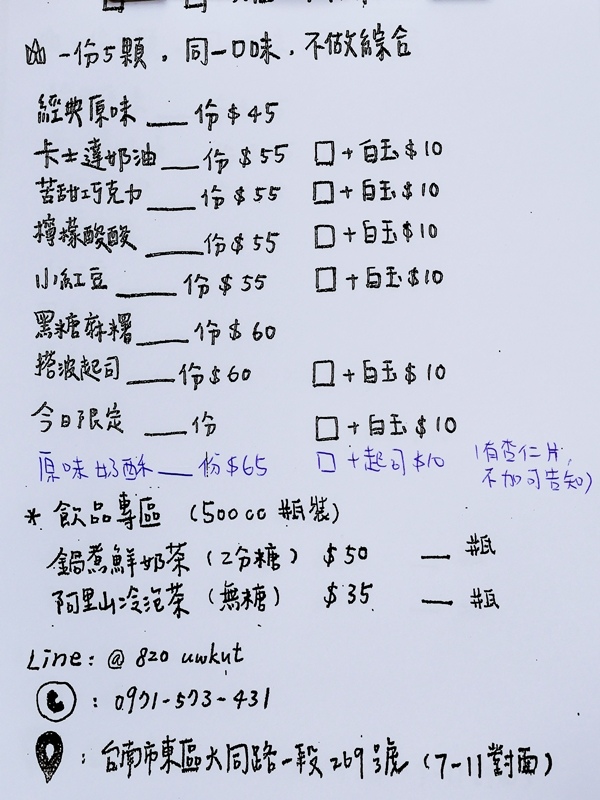 一份5顆，同一口味，不做綜合
經典原味 ___ 份 $45
卡士達奶油 ___ 份 $55 □ +白玉 $10
苦甜巧克力 ___ 份 $55 □ +白玉 $10
檸檬酸酸 ___ 份 $55 □ +白玉 $10
小紅豆 ___ 份 $55 □ +白玉 $10
黑糖麻糬 ___ 份 $60
搭波起司 ___ 份 $60 □ +白玉 $10
今日限定 ___ 份 □ +白玉 $10
原味奶酥 ___ 份 $65 □ +起司 $10 (有杏仁片,
不加可告知)
* 飲品專區 (500cc 瓶裝)
鍋煮鮮奶茶 (2分糖) $50 __ 瓶
阿里山冷泡茶 (無糖) $35 __ 瓶
Line: @820uwkut
: 0971-573-431
: 台南市東區大同路一段269號 (7-11對面)